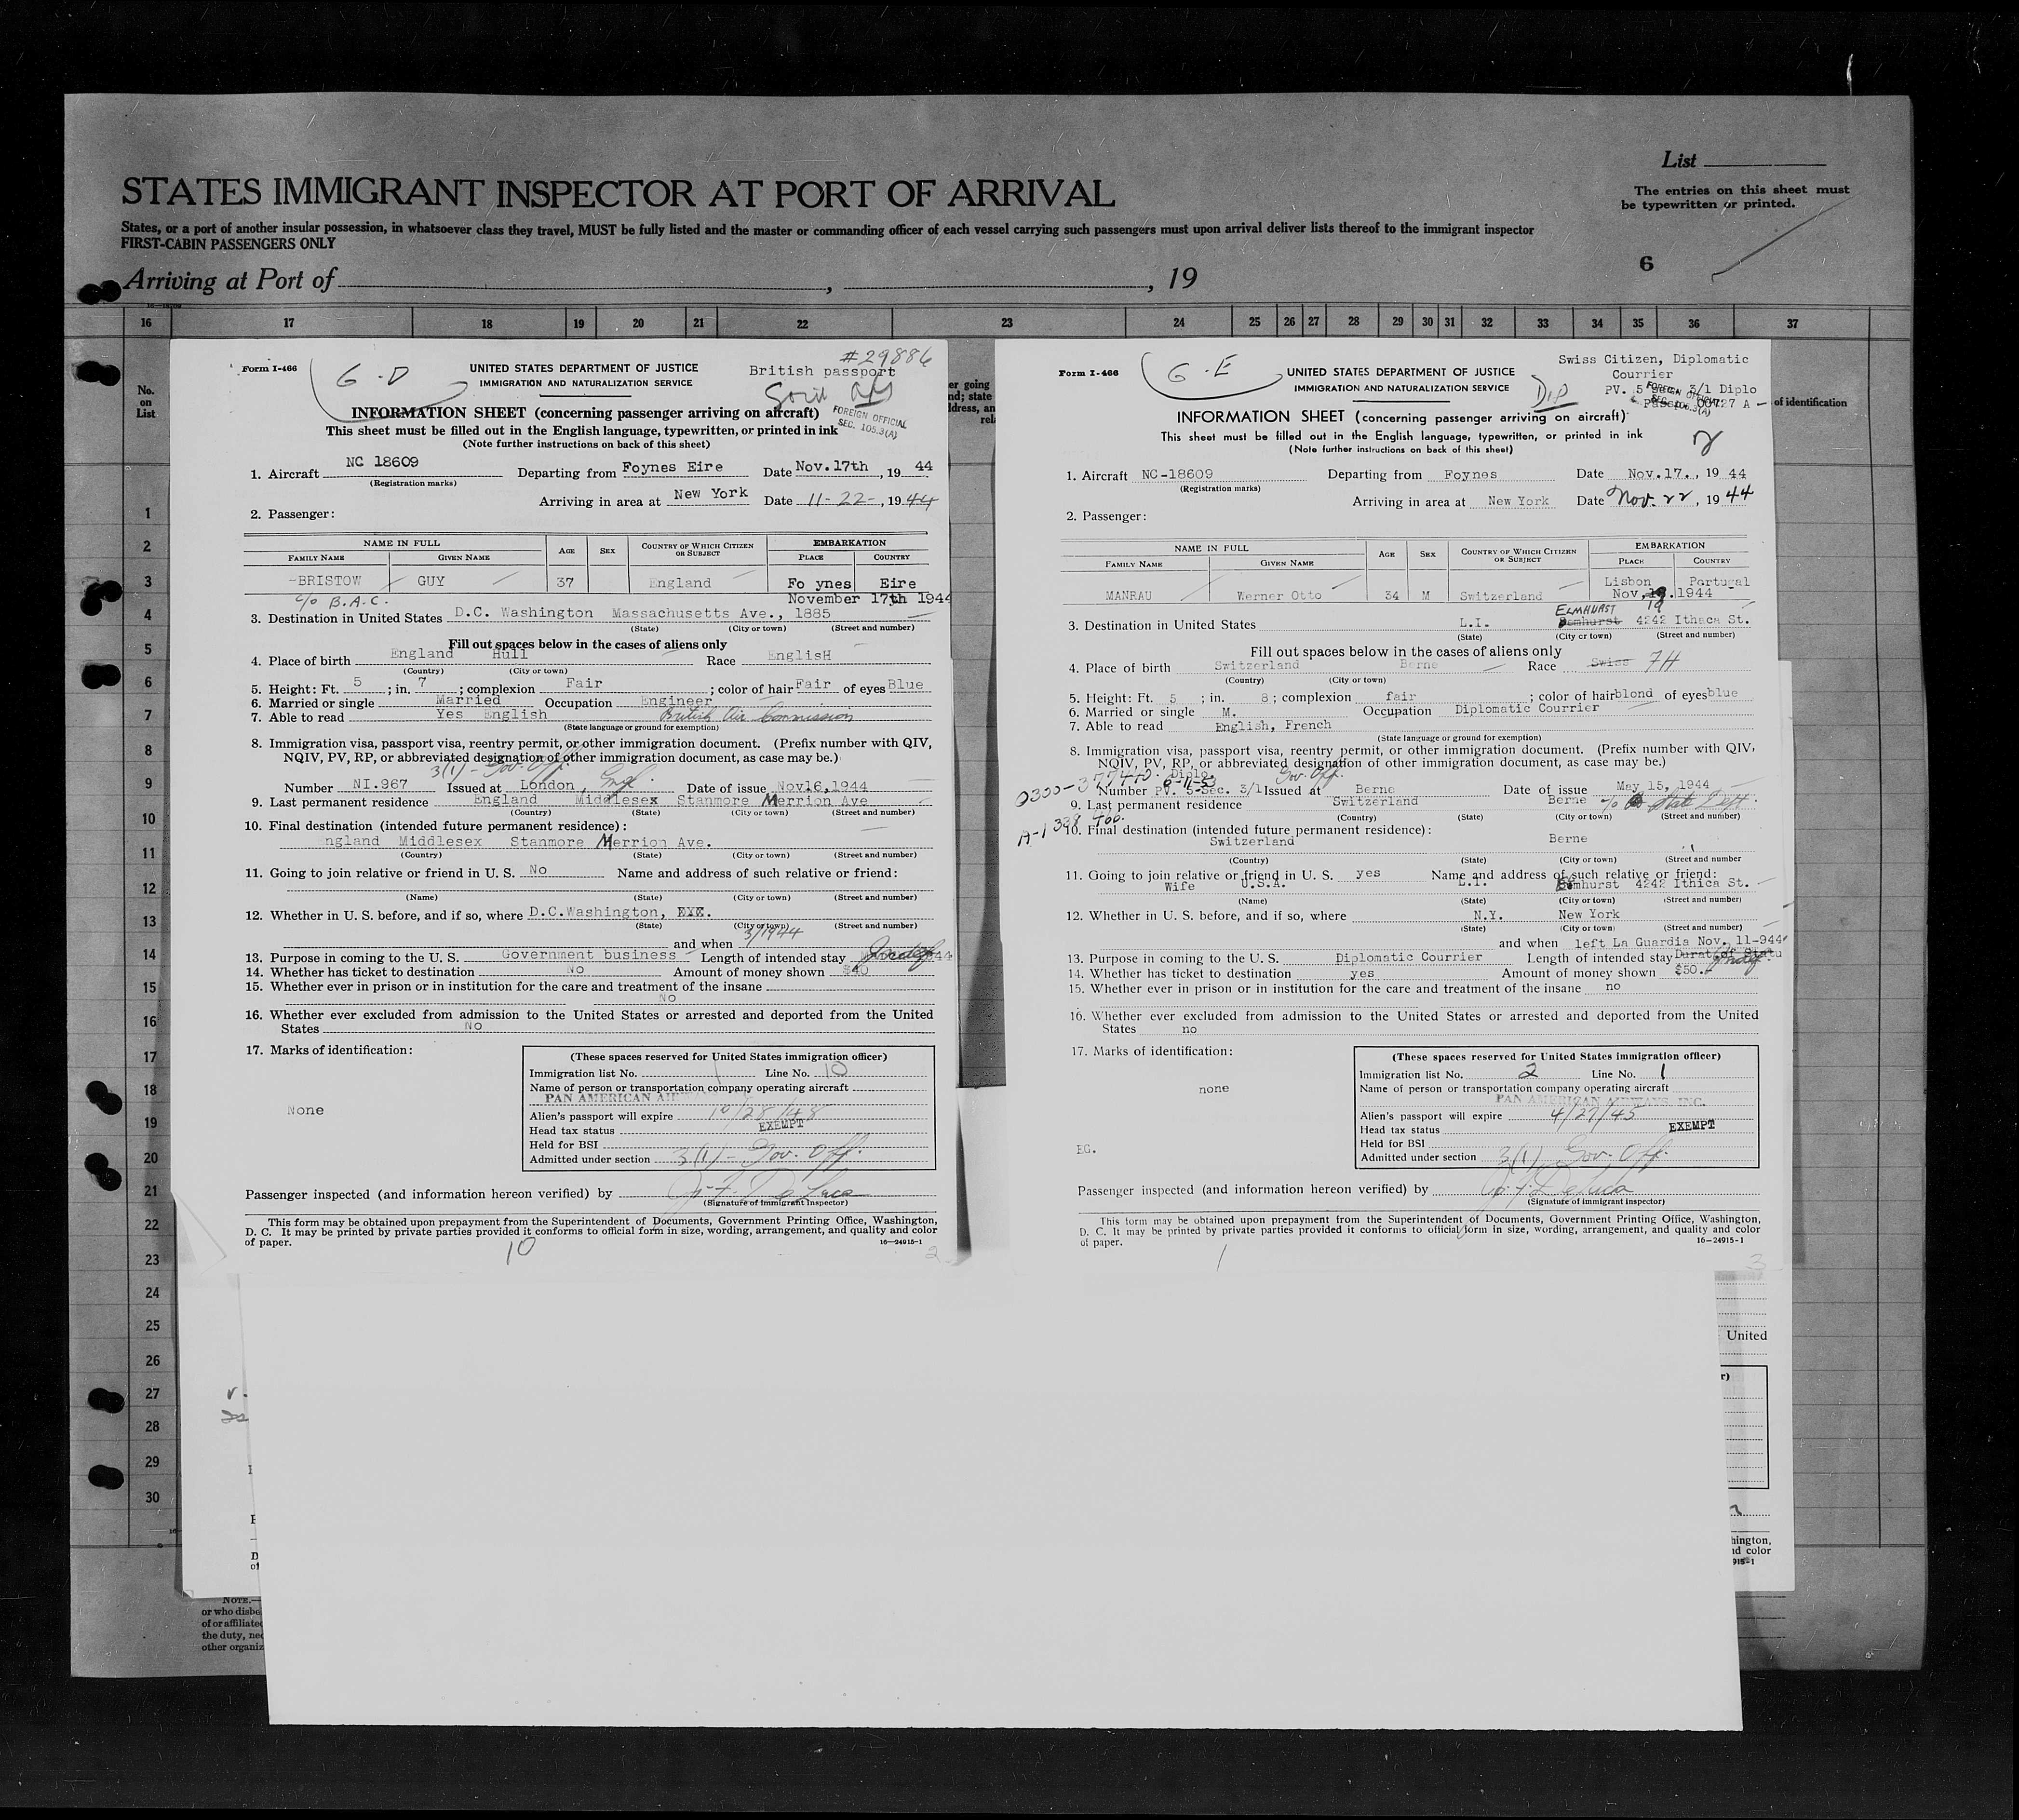 List
STATES IMMIGRANT INSPECTOR AT PORT OF ARRIVAL
The entries on this sheet must
be typewritten or printed.
States, or a port of another insular possession, in whatsoever class they travel, MUST be fully listed and the master or commanding officer of each vessel carrying such passengers must upon arrival deliver lists thereof to the immigrant inspector
FIRST-CABIN PASSENGERS ONLY
6
Arriving at Port of , , 19
16 17 18 19 20 21 22 23 24 25 26 27 28 29 30 31 32 33 34 35 36 37
No.
on
List
of identification
1
2
3
4
5
6
7
8
9
10
11
12
13
14
15
16
17
18
19
20
21
22
23
24
25
26
27
28
29
30
Form I-466
G-D
#29886
UNITED STATES DEPARTMENT OF JUSTICE
British passport
IMMIGRATION AND NATURALIZATION SERVICE
INFORMATION SHEET (concerning passenger arriving on aircraft)
FOREIGN OFFICIAL
SEC. 105.3(A)
This sheet must be filled out in the English language, typewritten, or printed in ink
(Note further instructions on back of this sheet)
1. Aircraft NC 18609 Departing from Foynes Eire Date Nov.17th, 19 44
(Registration marks)
Arriving in area at New York Date 11-22-, 1944
2. Passenger:
NAME IN FULL AGE SEX COUNTRY OF WHICH CITIZEN OR SUBJECT EMBARKATION
FAMILY NAME GIVEN NAME PLACE COUNTRY
-BRISTOW GUY 37 England Fo ynes Eire
c/o B.A.C. November 17th 1944
3. Destination in United States D.C. Washington Massachusetts Ave., 1885
(State) (City or town) (Street and number)
Fill out spaces below in the cases of aliens only
4. Place of birth England Hull Race EnglisH
(Country) (City or town)
5. Height: Ft. 5 ; in. 7 ; complexion Fair ; color of hair Fair of eyes Blue
6. Married or single Married Occupation Engineer
7. Able to read Yes English British Air Commission
(State language or ground for exemption)
8. Immigration visa, passport visa, reentry permit, or other immigration document. (Prefix number with QIV,
NQIV, PV, RP, or abbreviated designation of other immigration document, as case may be.)
3(1) - Gov. Off.
Number NI.967 Issued at London, Engl. Date of issue Nov16,1944
9. Last permanent residence England Middlesex Stanmore Merrion Ave
(Country) (State) (City or town) (Street and number)
10. Final destination (intended future permanent residence):
ngland Middlesex Stanmore Merrion Ave.
(Country) (State) (City or town) (Street and number)
11. Going to join relative or friend in U. S. No Name and address of such relative or friend:
(Name) (State) (City or town) (Street and number)
12. Whether in U. S. before, and if so, where D.C.Washington,
(State) (City or town) (Street and number)
and when 3/1944
13. Purpose in coming to the U. S. Government business Length of intended stay
14. Whether has ticket to destination No Amount of money shown $40
15. Whether ever in prison or in institution for the care and treatment of the insane
No
16. Whether ever excluded from admission to the United States or arrested and deported from the United
States No
17. Marks of identification:
None
(These spaces reserved for United States immigration officer)
Immigration list No. 1 Line No. 10
Name of person or transportation company operating aircraft
PAN AMERICAN
Alien's passport will expire 10/28/48
Head tax status EXEMPT
Held for BSI
Admitted under section 3(1) - Gov. Off.
Passenger inspected (and information hereon verified) by J. F. DeLuca
(Signature of immigrant inspector)
This form may be obtained upon prepayment from the Superintendent of Documents, Government Printing Office, Washington,
D. C. It may be printed by private parties provided it conforms to official form in size, wording, arrangement, and quality and color
of paper. 16—24915-1
10
2
Form I-466
G-E
UNITED STATES DEPARTMENT OF JUSTICE
IMMIGRATION AND NATURALIZATION SERVICE
Swiss Citizen, Diplomatic
Courrier
Dip
PV. 5 3/1 Diplo
FOREIGN OFFICIAL
SEC. 105.3(A)
INFORMATION SHEET (concerning passenger arriving on aircraft)
This sheet must be filled out in the English language, typewritten, or printed in ink
(Note further instructions on back of this sheet)
1. Aircraft NC-18609 Departing from Foynes Date Nov.17., 19 44
(Registration marks)
Arriving in area at New York Date Nov. 22, 19 44
2. Passenger:
NAME IN FULL AGE SEX COUNTRY OF WHICH CITIZEN OR SUBJECT EMBARKATION
FAMILY NAME GIVEN NAME PLACE COUNTRY
Lisbon Portugal
MANRAU Werner Otto 34 M Switzerland Nov, 19.1944
ELMHURST
3. Destination in United States L.I. 4242 Ithaca St.
(State) (City or town) (Street and number)
Fill out spaces below in the cases of aliens only
4. Place of birth Switzerland Berne Race Swiss 7H
(Country) (City or town)
5. Height: Ft. 5 ; in. 8 ; complexion fair ; color of hair blond of eyes blue
6. Married or single M. Occupation Diplomatic Courrier
7. Able to read English, French
(State language or ground for exemption)
8. Immigration visa, passport visa, reentry permit, or other immigration document. (Prefix number with QIV,
NQIV, PV, RP, or abbreviated designation of other immigration document, as case may be.)
0300-377440. Diplo. Gov. Off.
Number PV. 5-Sec. 3/1 Issued at Berne Date of issue May 15, 1944
9. Last permanent residence Switzerland Berne c/o State Dept.
(Country) (State) (City or town) (Street and number)
A-1338 466.
10. Final destination (intended future permanent residence):
Switzerland Berne
(Country) (State) (City or town) (Street and number
11. Going to join relative or friend in U. S. yes Name and address of such relative or friend:
Wife U.S.A. L.I. Elmhurst 4242 Ithica St.
(Name) (State) (City or town) (Street and number)
12. Whether in U. S. before, and if so, where N.Y. New York
(State) (City or town) (Street and number)
and when left La Guardia Nov. 11-944
13. Purpose in coming to the U. S. Diplomatic Courrier Length of intended stay Durat.of Statu
14. Whether has ticket to destination yes Amount of money shown $50.
15. Whether ever in prison or in institution for the care and treatment of the insane no
16. Whether ever excluded from admission to the United States or arrested and deported from the United
States no
17. Marks of identification:
none
EC.
(These spaces reserved for United States immigration officer)
Immigration list No. 2 Line No. 1
Name of person or transportation company operating aircraft
PAN AMERICAN AIRWAYS, INC.
Alien's passport will expire 4/27/45
Head tax status EXEMPT
Held for BSI
Admitted under section 3(1) Gov. Off.
Passenger inspected (and information hereon verified) by J. F. DeLuca
(Signature of immigrant inspector)
This form may be obtained upon prepayment from the Superintendent of Documents, Government Printing Office, Washington,
D. C. It may be printed by private parties provided it conforms to official form in size, wording, arrangement, and quality and color
of paper. 16—24915-1
1
3
United
hington,
nd color
915-1
NOTE.—
or who disbe
of or affiliated
the duty, nec
other organiz